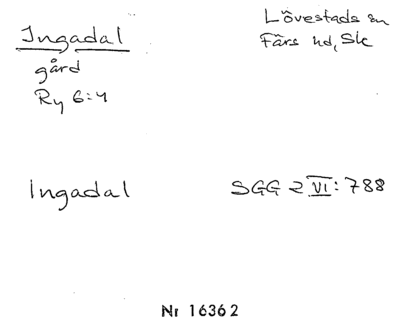 Ingadal
Lövestads sn
Färs hd, Sk
gård
Ry 6:4
Ingadal
SGG 2 VI: 788
Nr 16362